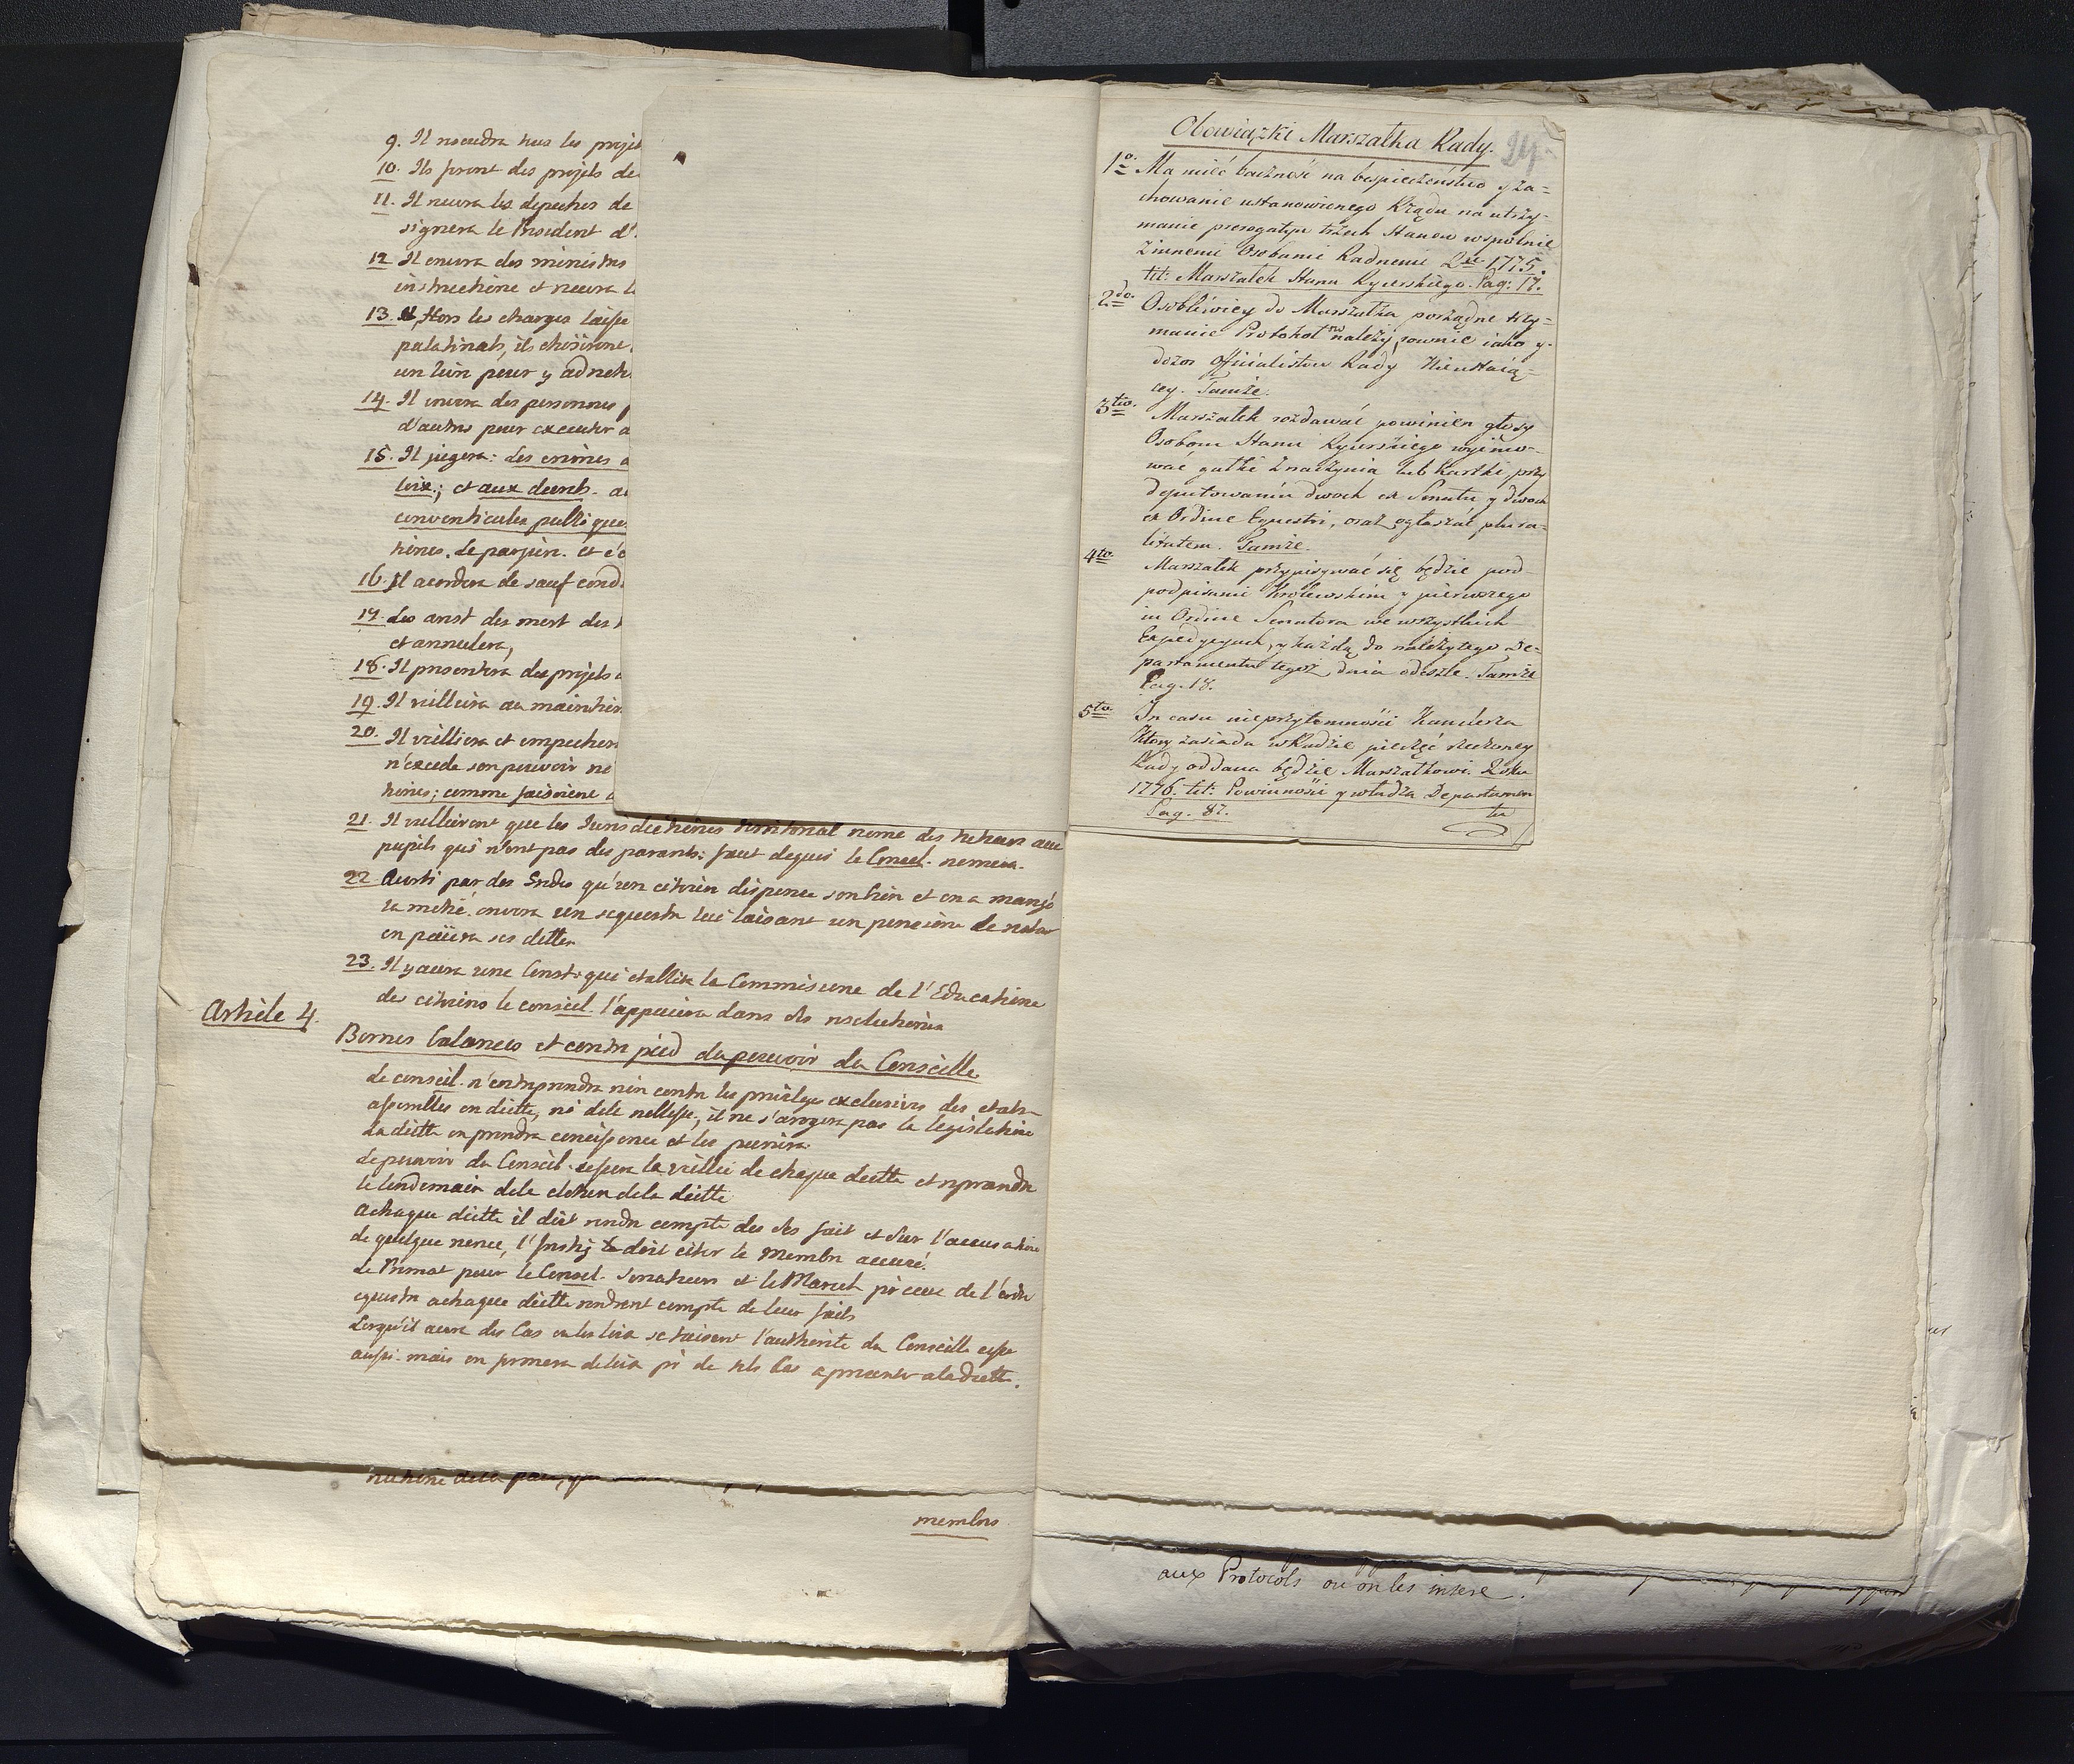 9. Il recevdra tous les projet
10. Ils feront des projets de
11. Il recevra les depeches de
signera le President d'
12 Il envera des ministres
instructione et recevra l
13. Hors les charges laisse
palatinats, ils choisirone
un lieu pour y admeh
14. Il envera des personnes p
d'autres pour executer a
15. Il jugera: des crimes a
loix; et aux decrets. a
conventicules publiques
tiones. Le parjure. et éc
16. Il acordera de sauf cond
17. Les arest des mert des
et annulera,
18. Il presentera des projets
19. Il veillera au maintien
20. Il veillera et empecher
n'excede son pouvoir ni
tiones; comme faisoient
21. Il veilleront que les Jurisdictiones territorial nome des tuteurs aux
pupils qui n'ont pas des parants: faut dequoi le Conseil. nomera.
22 Averti par des Ordres qu'un citoien dispense son bien et en a mangé
la motié. envera un sequestre lui laisant un pensione le reste
en païera ses dettes
23. Il y aura une Const. qui etablira la Commisione de l'Educatione
des citoiens le conseil l'appuiera dans des resolutiones
Article 4.
Bornes balances et contre pied du pouvoir du Conseille
Le conseil. n'entreprendra rien contre les privileges exclusives des etats
assemblés en diette, ni dela noblesse, il ne s'arogera pas la legislatione
La diette en prendra conoissence et les punira.
Le pouvoir du Conseil. cessera la veille de chaque diette et reprendra
le lendemain dela cloture dela diette
A chaque diette il doit rendre compte des ses fait et sur l'accusatione
de quelque nonce, l'Instig doit citer le membre accusé.
Le Primat pour le Conseil. Senateurs et le Marech pr ceux de l'ordre
equestre a chaque diette rendront compte de leur faits
Lorsqu'il aura des Cas ou les loix se taisent l'authorite du Conseille cesse
aussi. mais on formera deloix pr de tels Cas a presenter a la diette.
membres
Obowiązki Marszałka Rady.
24
1o. Ma mieć baczność na bespieczeństwo y za=
chowanie ustanowionego Rządu na utrzy-
manie prerogatyw trzech Stanow wspolnie
z innemi Osobami Radnemi Rku 1775.
tit: Marszałek Stanu Rycerskiego. Pag: 17.
2do. Osobliwiey do Marszałka porządne trzy=
manie Protokołow należy, rownie iako y
dozor Officialistow Rady Nieustaią=
cey. Tamże.
3tio. Marszałek rozdawać powinien głosy
Osobom Stanu Rycerskiego wyimo-
wać gałki z naczynia lub Kartki przy
deputowaniu dwoch ex Senatu y dwoch
ex Ordine Equestri, oraz ogłaszać plura-
litatem. Tamże.
4to. Marszałek przypisywać się będzie pod
podpisami Krolewskim y pierwszego
in Ordine Senatora we wszystkich
Expedycyach, y każdą do należytego De-
partamentu tegoż dnia odeszle. Tamże
Pag. 18.
5to. In casu nieprzytomności Kanclerza
ktory zasiada w Radzie pieczęć rzeczoney
Rady oddana będzie Marszałkowi. Roku
1776. tit: Powinności y władza Departamen
tu
Pag. 87.
aux Protocols ou on les insere.